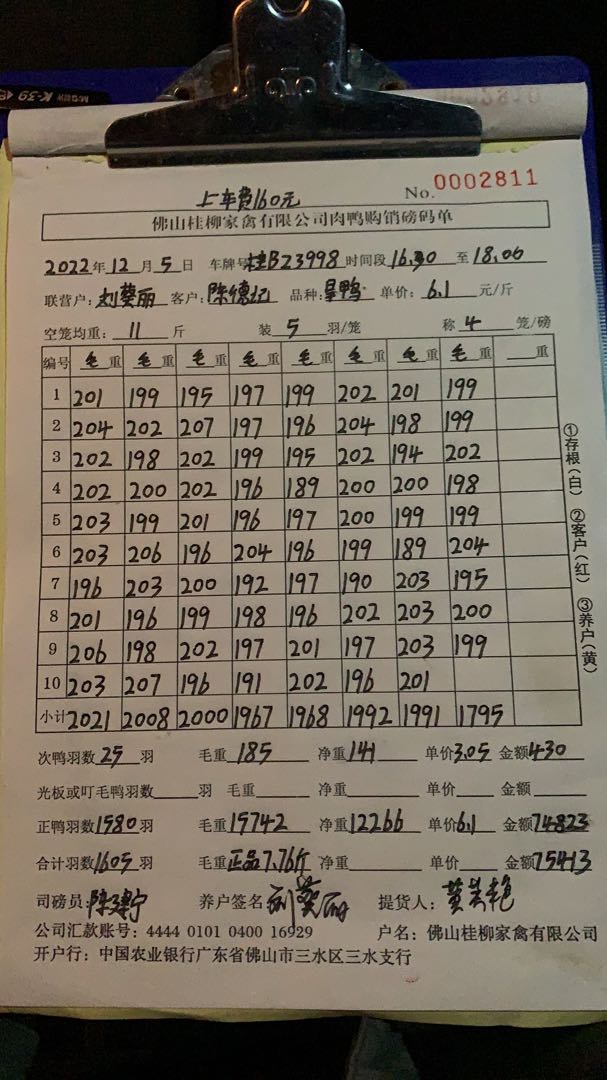 K-39
上车费160元
No. 0002811
佛山桂柳家禽有限公司肉鸭购销磅码单
2022年12月5日 车牌号桂BZ3998时间段16.30至18.00
联营户：刘葵丽 客户：陈德记 品种：旱鸭 单价：6.1元/斤
空笼均重：11斤 装5羽/笼 称4笼/磅
编号 毛重 毛重 毛重 毛重 毛重 毛重 毛重 毛重 重
1 201 199 195 197 199 202 201 199
2 204 202 207 197 196 204 198 199
3 202 198 202 199 195 202 194 202
4 202 200 202 196 189 200 200 198
5 203 199 201 196 197 200 199 199
6 203 206 196 204 196 199 189 204
7 196 203 200 192 197 190 203 195
8 201 196 199 198 196 202 203 200
9 206 198 202 197 201 197 203 199
10 203 207 196 191 202 196 201
小计 2021 2008 2000 1967 1968 1992 1991 1795
①存根(白) ②客户(红) ③养户(黄)
次鸭羽数25羽 毛重185 净重141 单价3.05 金额430
光板或叮毛鸭羽数 羽 毛重 净重 单价 金额
正鸭羽数1580羽 毛重15742 净重12266 单价6.1 金额74823
合计羽数1605羽 毛重正品7.76斤 净重 单价 金额75413
司磅员：陈建宁 养户签名 刘葵丽 提货人：黄
公司汇款账号：4444 0101 0400 16929 户名：佛山桂柳家禽有限公司
开户行：中国农业银行广东省佛山市三水区三水支行